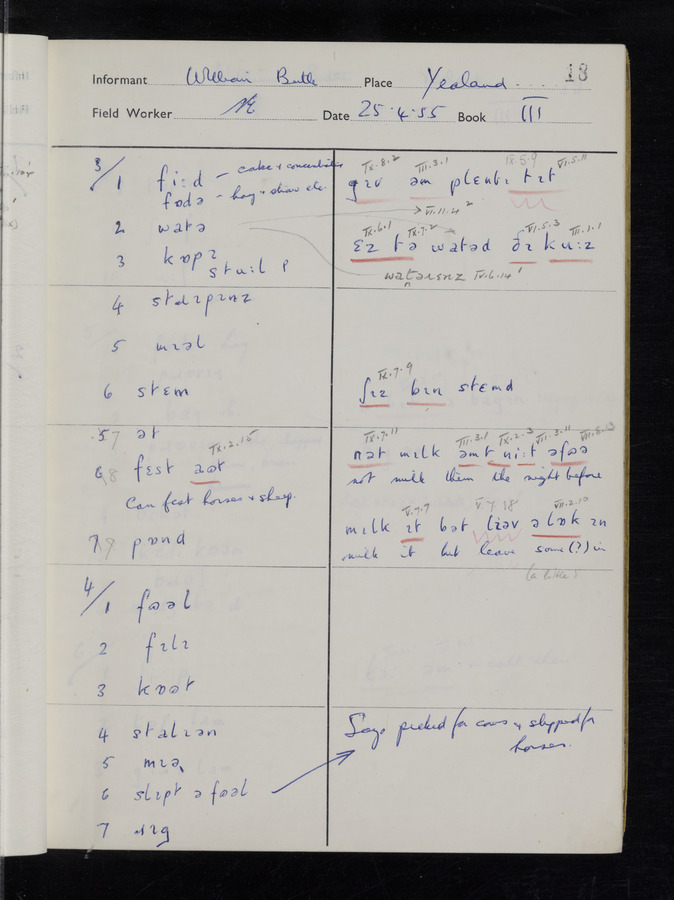 Informant William Place Yealand 13
Field Worker Date 25·4·55 Book III
3/1 fiːd – cake & concentrates
fɒdə – hay & straw etc.
IX.8.2 III.3.1 IX.5.9 VI.5.11
gɪv əm plɛntɪ tɪt
2 watə
→ VI.11.4
IX.6.1 IX.7.2 VI.5.3 III.1.1
ɛz tə watəd ðɪ kuːz
3 kɒpɪ
stuːl
IV.6.14
4
5 mɪəl
6 stɛm
IX.7.9
ʃɪz bɪn stɛmd
57 ət
IX.7.11 III.3.1 IX.2.3 VII.3.11 VII.8.13
nət mɪlk əmt niːt əfʊə
not milk them the night before
68 fɛst aʊt IX.2.15
Can fest horses & sheep.
V.7.7 V.7.18 VII.2.10
mɪlk ɪt bət lɪəv ə lɒk ɪn
milk it but leave some (?) in
(a little)
79 pɒnd
4/1 fʊəl
2 fɪlɪ
3 kʊət
4 stalɪən
5 mɪə
6 slɪpt ə fʊəl
Says picked for cows & slipped for
horses.
7 rɪg